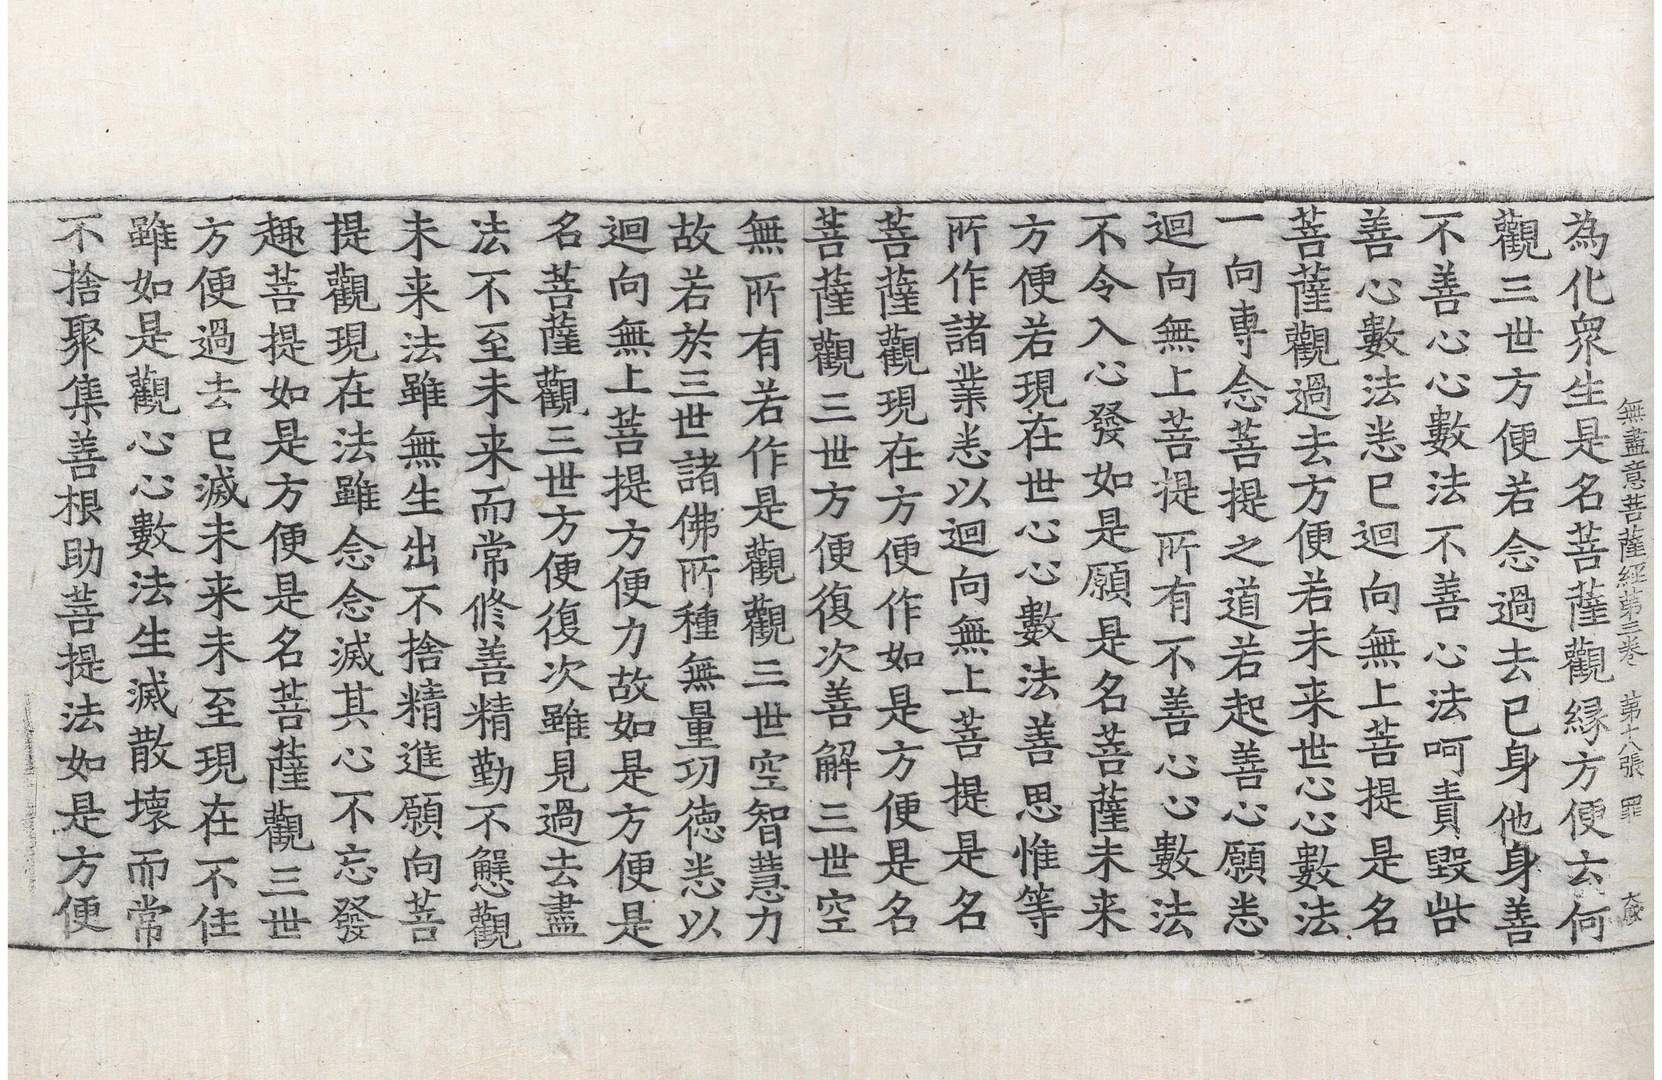 無盡意菩薩經第三卷　第十八張　罪
為化衆生是名菩薩觀緣方便云何
觀三世方便若念過去已身他身善
不善心心數法不善心法呵責毀呰
善心數法悉已迴向無上菩提是名
菩薩觀過去方便若未来世心心數法
一向專念菩提之道若起善心願悉
迴向無上菩提所有不善心心數法
不令入心發如是願是名菩薩未来
方便若現在世心心數法善思惟等
所作諸業悉以迴向無上菩提是名
菩薩觀現在方便作如是方便是名
菩薩觀三世方便復次善解三世空
無所有若作是觀觀三世空智慧力
故若於三世諸佛所種無量功德悉以
迴向無上菩提方便力故如是方便是
名菩薩觀三世方便復次雖見過去盡
法不至未来而常修善精勤不懈觀
未来法雖無生出不捨精進願向菩
提觀現在法雖念念滅其心不忘發
趣菩提如是方便是名菩薩觀三世
方便過去已滅未来未至現在不住
雖如是觀心心數法生滅散壞而常
不捨聚集善根助菩提法如是方便